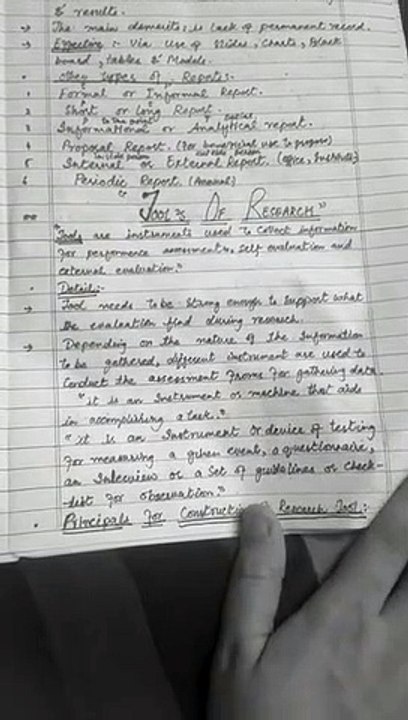 & results.
→ The main demerits: is lack of permanent record.
→ Effecting :- Via Use of Slides, Charts, Black
board, tables & Models.
• Other types of Reports.
1 Formal or Informal Report.
2 Short or Long Report.
to the point
3 Informational or Analytical report.
4 Proposal Report. (For beneficial use to propose)
inside person outside person
5 Internal or External Report. (office, Institute)
6 Periodic Report. (Annual)
"TOOLS OF RESEARCH"
"Tools are instruments used to collect information
for performance assessments, self evaluation and
external evaluation."
• Details:-
→ Tool needs to be strong enough to support what
the evaluation find during research.
→ Depending on the nature of the Information
to be gathered, different instrument are used to
conduct the assessment from for gathering data.
"it is an Instrument or machine that aids
in accomplishing a task."
"it is an Instrument or device of testing
for measuring a given event, a questionnaire,
an Interview or a Set of guidelines or Check-
-list for observation."
• Principals For Construction Research Tool: